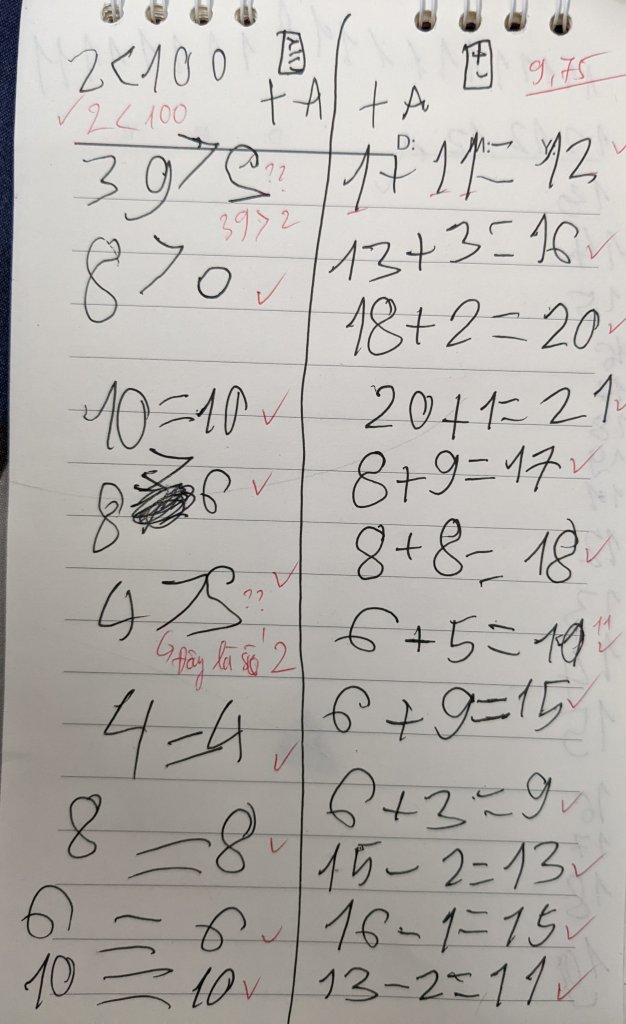 2<100
+A
✓ 2<100
39>2 ??
39>2
8>0 ✓
10=10 ✓
8>6 ✓
4>2 ?? ✓
↳ Đây là số 2
4=4 ✓
8=8 ✓
6=6 ✓
10=10 ✓
9,75
+A
Đ:
1+11=12 ✓
13+3=16 ✓
18+2=20 ✓
20+1=21 ✓
8+9=17 ✓
8+8=18 ✓
6+5=10 11 ✓
6+9=15 ✓
6+3=9 ✓
15-2=13 ✓
16-1=15 ✓
13-2=11 ✓